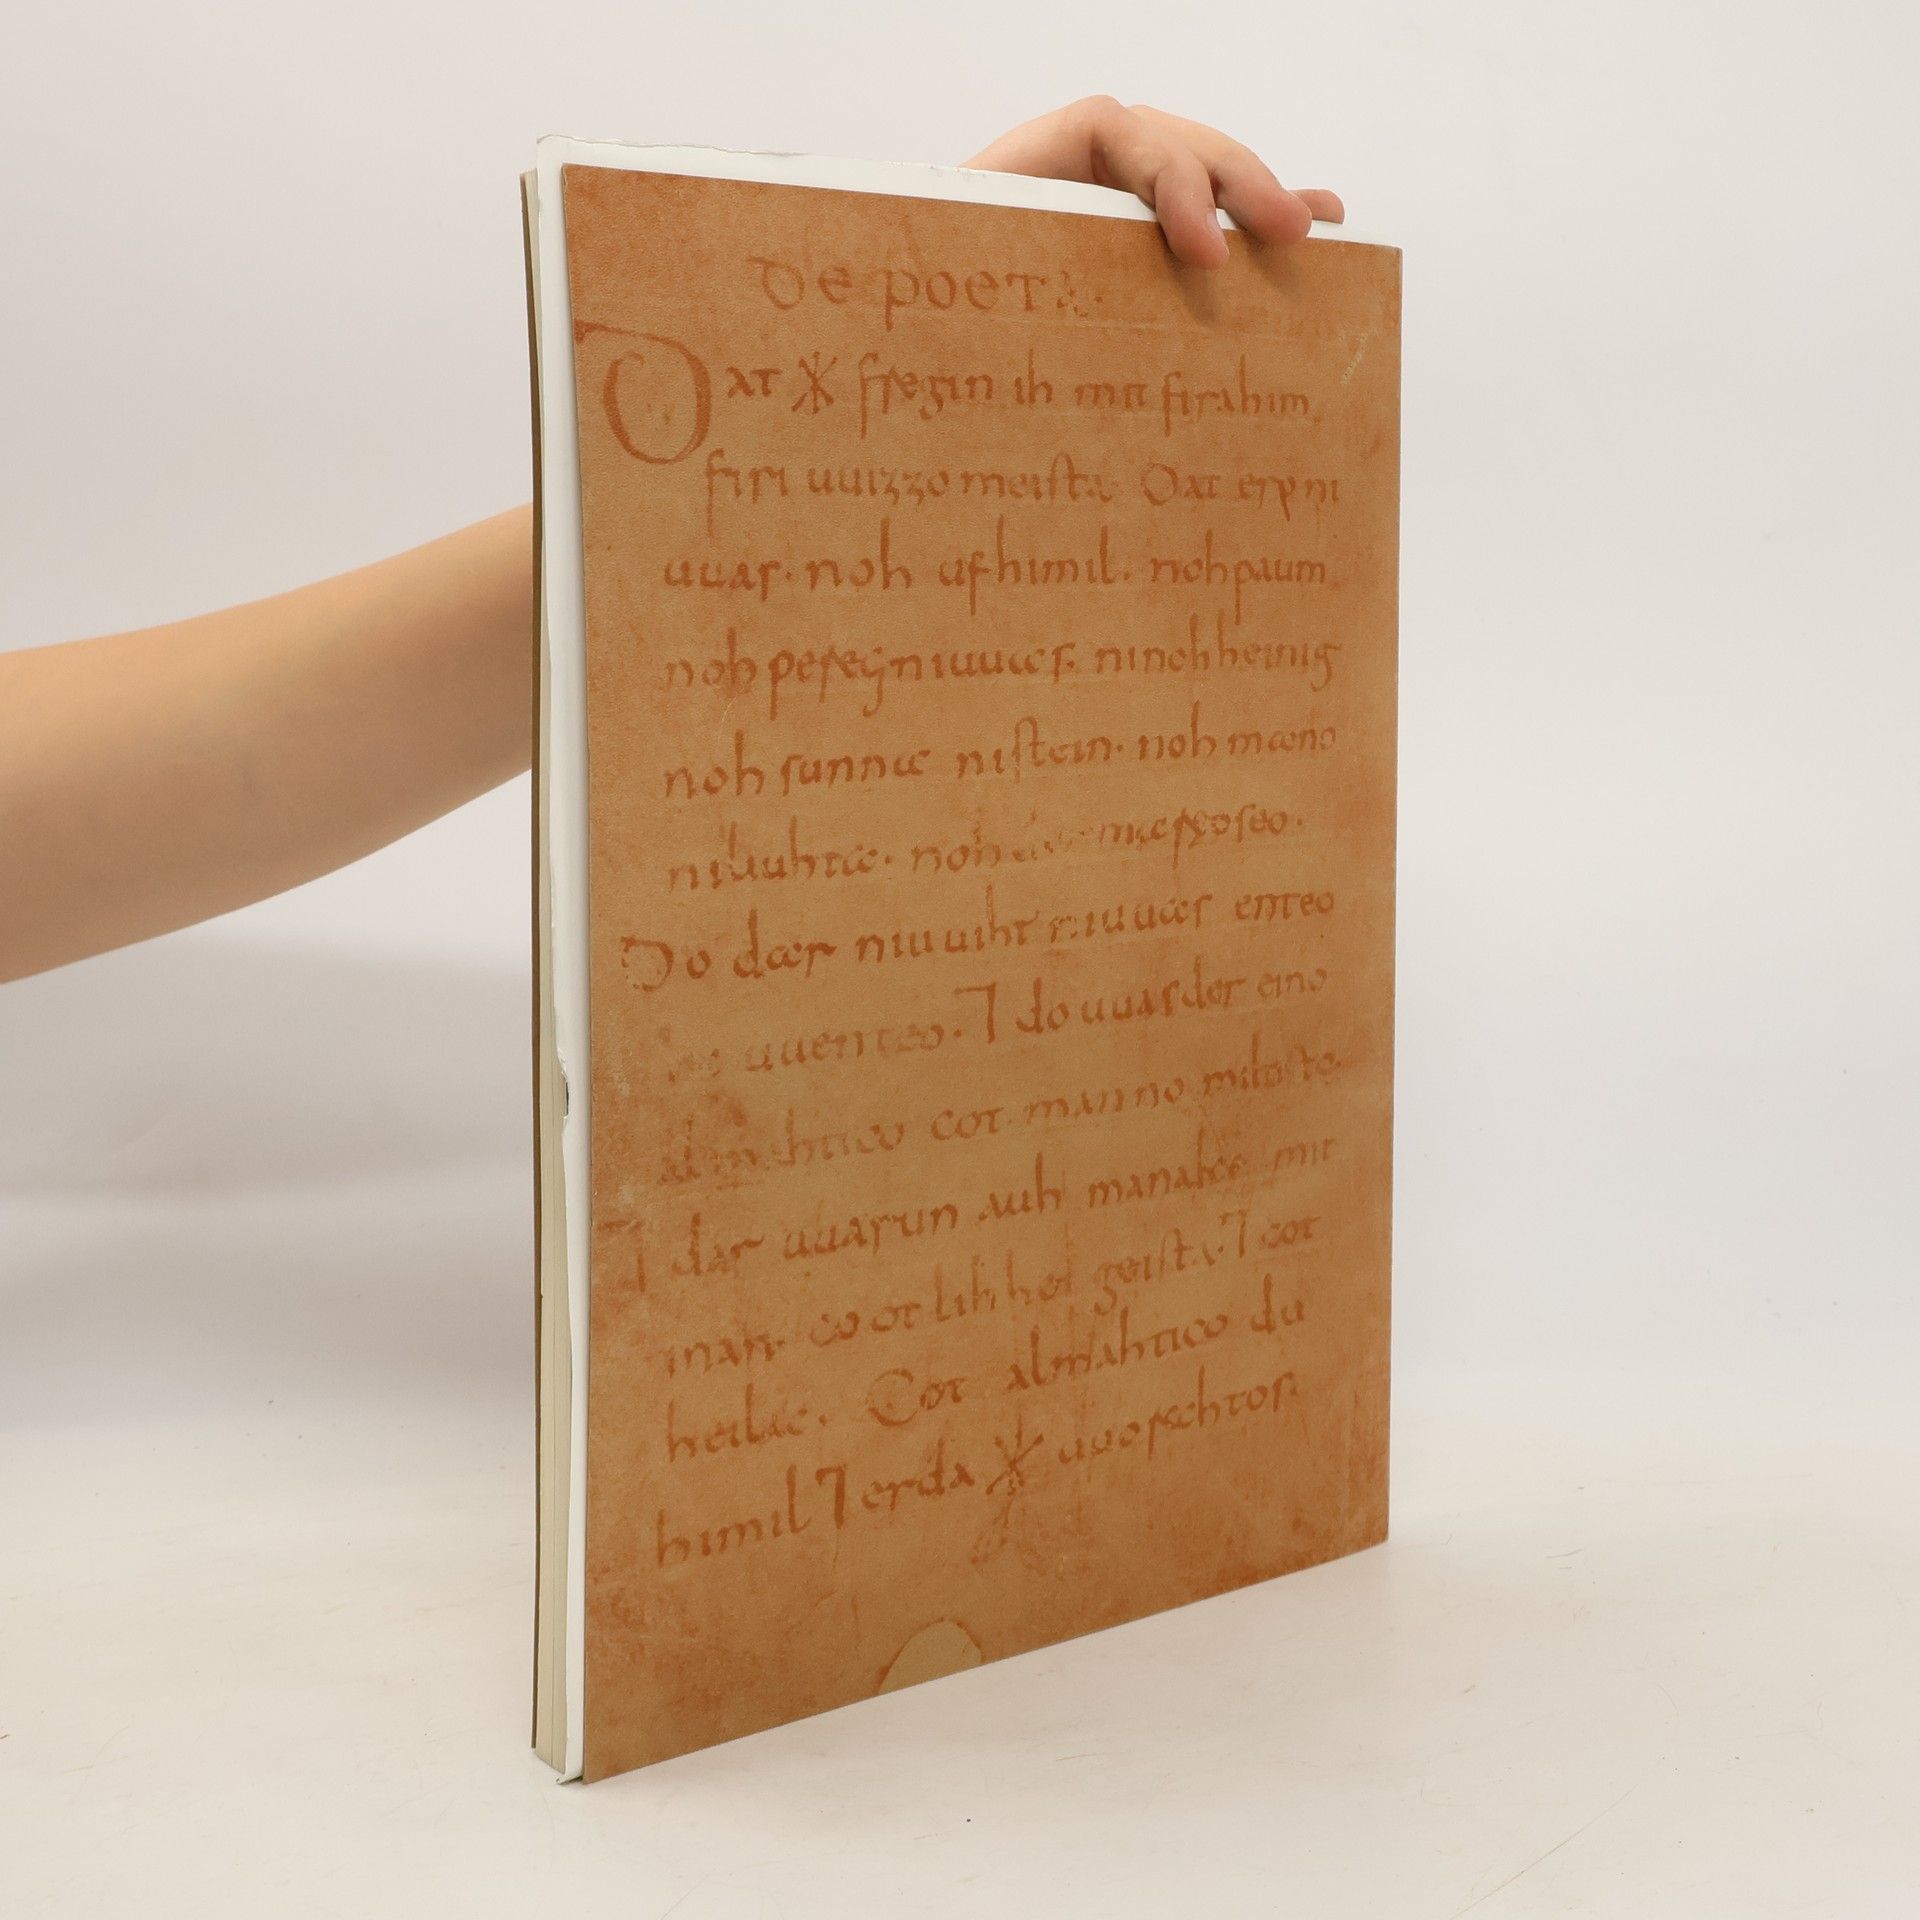 De poeta.
Dat ᚷ fregin ih mit firahim
firi uuizzo meista. Dat ero ni
uuas. noh ufhimil. noh paum
noh pereg ni uuas. ninohheinig
noh sunna nistein. noh mano
niliuhta. noh der mareoseo.
Do dar niuuiht niuuas enteo
ni uuenteo. ⁊ do uuas der eino
almahtico cot manno miltisto.
⁊ dar uuarun auh manake mit
inan. cootlihhe geista. ⁊ cot
heilac. Cot almahtico du
himil ⁊ erda ᚷ uuorahtos.